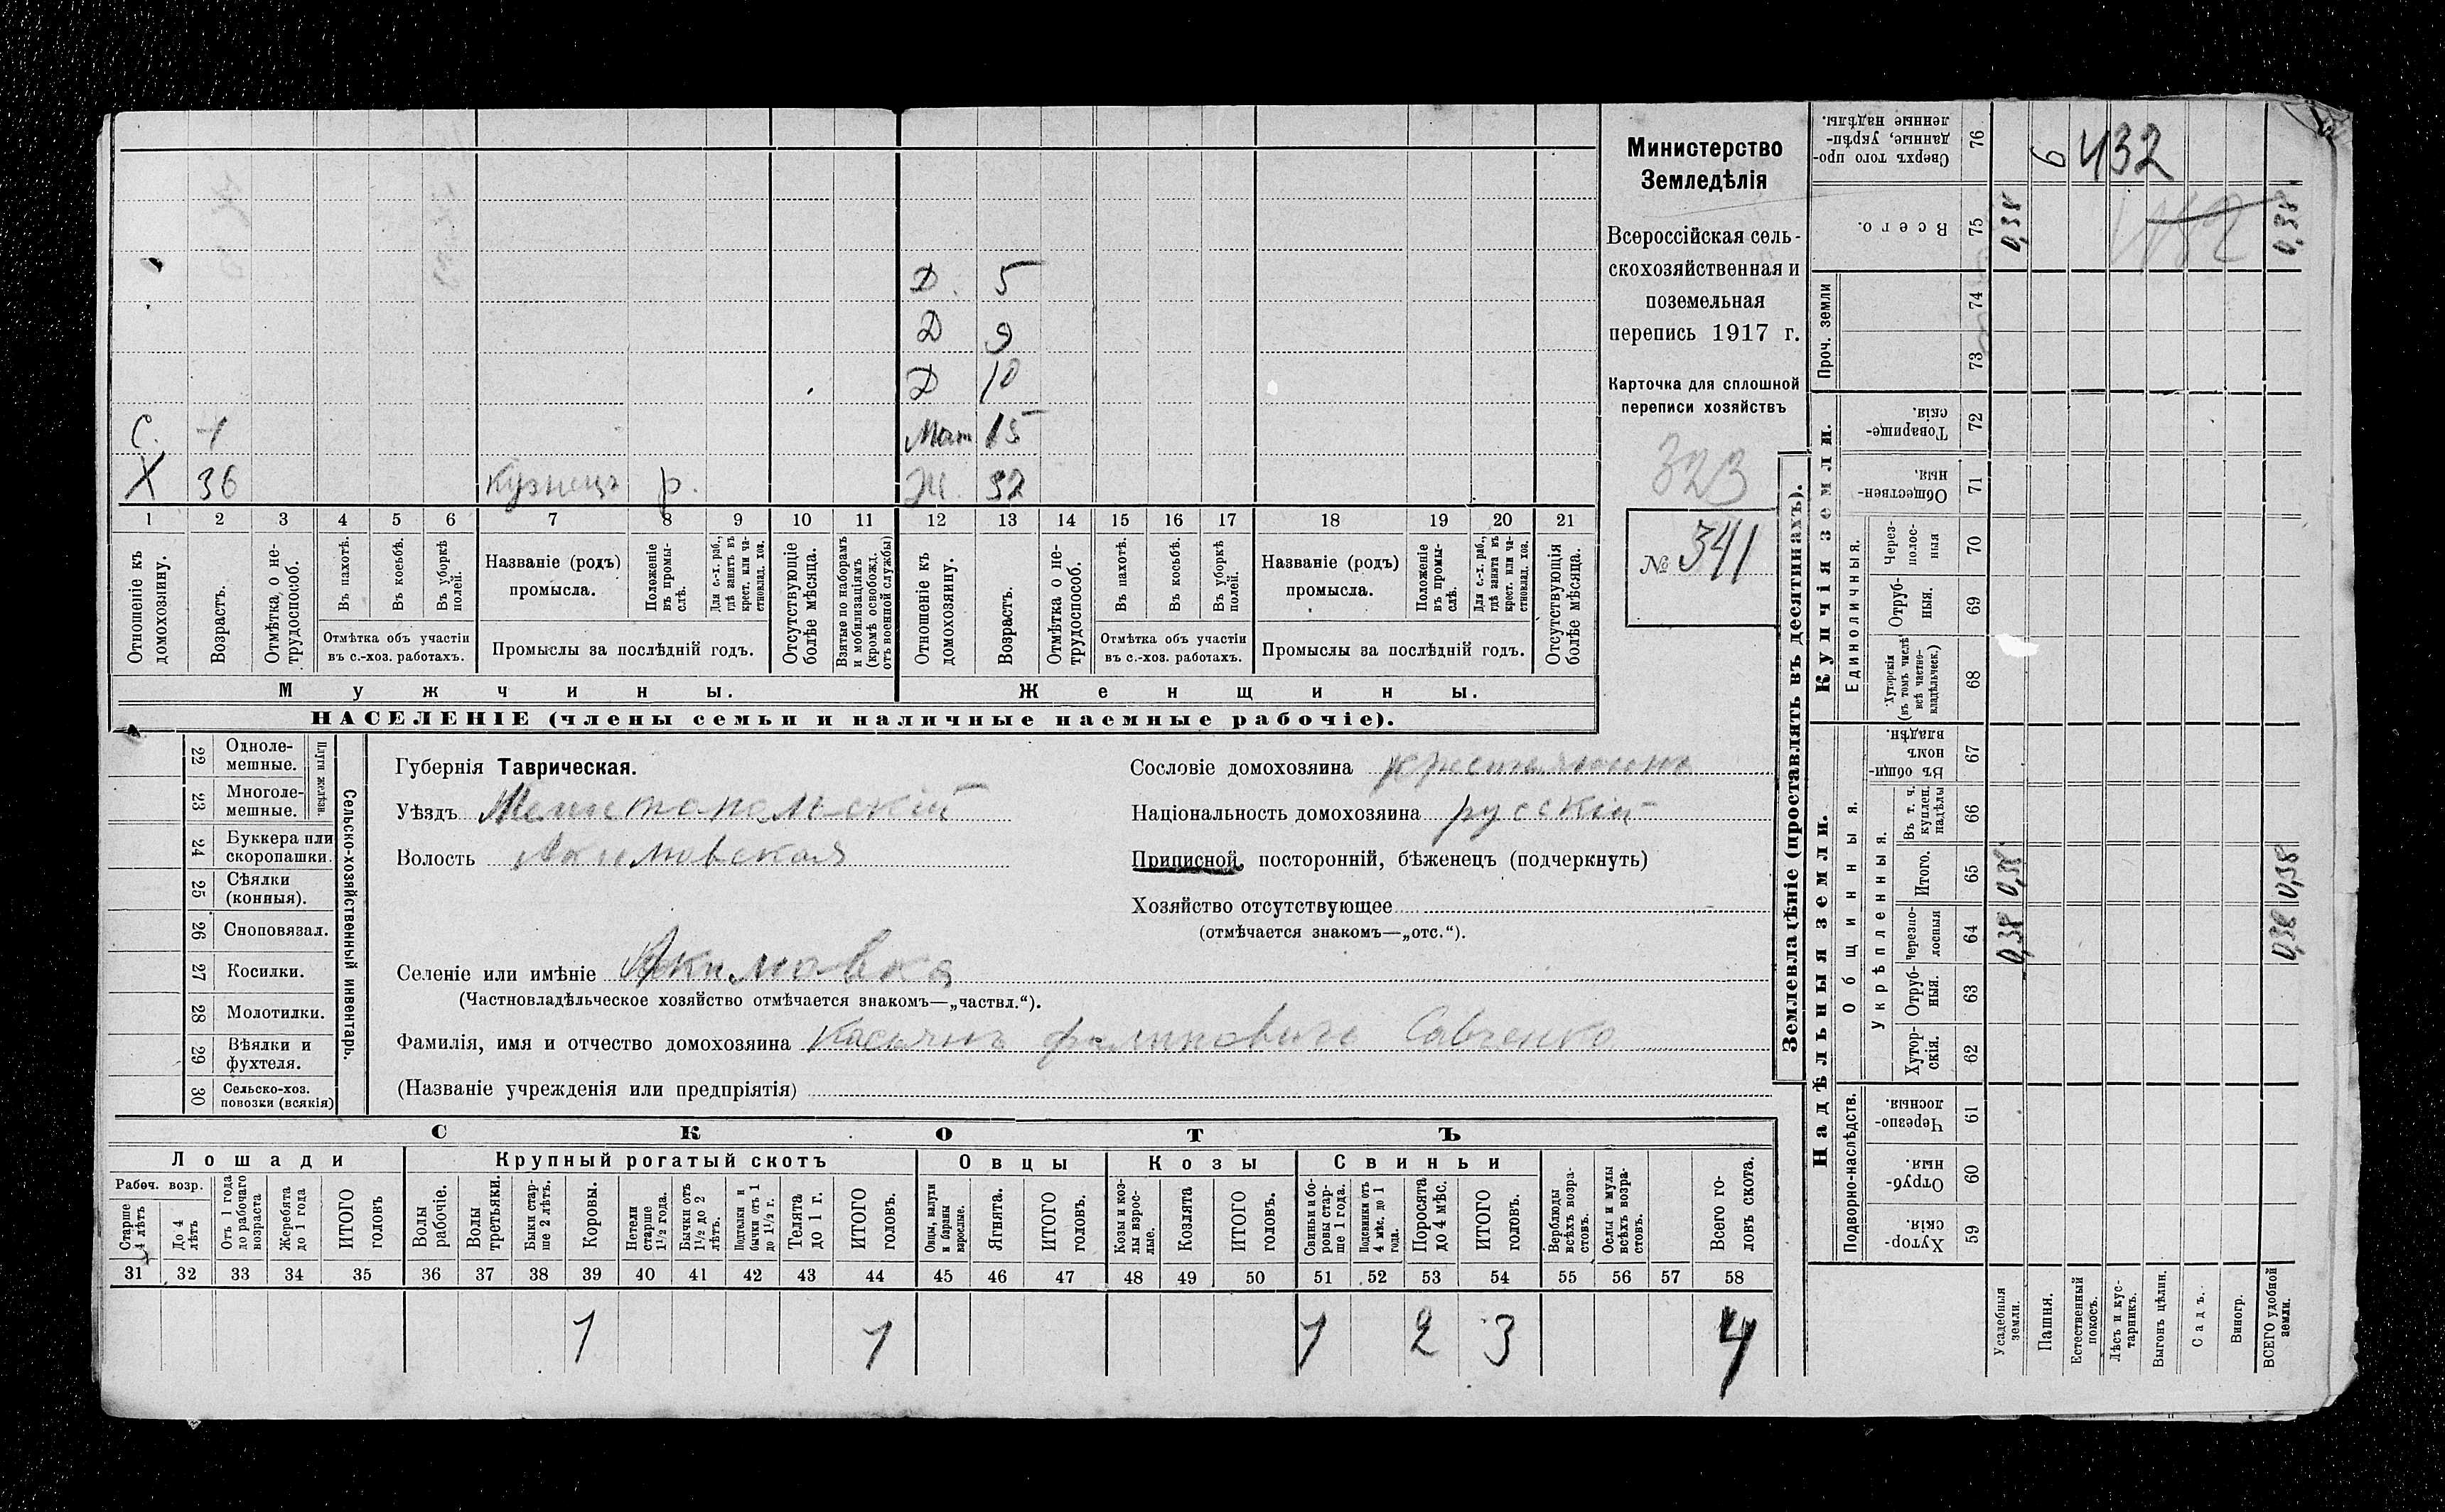 Д. 5
Д 9
Д 10
С. 1 Мат 15
Х 36 кузнецъ р. Ж. 32
1 2 3 4 5 6 7 8 9 10 11 12 13 14 15 16 17 18 19 20 21
Отношеніе къ домохозяину.
Возрастъ.
Отмѣтка о нетрудоспособ.
Въ пахотѣ.
Въ косьбѣ.
Въ уборкѣ полей.
Отмѣтка объ участіи
въ с.-хоз. работахъ.
Названіе (родъ)
промысла.
Положеніе въ промыслѣ.
Для с.-х. раб., гдѣ занятъ въ крест. или частновлад. хоз.
Промыслы за послѣдній годъ.
Отсутствующіе болѣе мѣсяца.
Взятые по наборамъ и мобилизаціямъ (кромѣ освобожд. отъ военной службы)
Отношеніе къ домохозяину.
Возрастъ.
Отмѣтка о нетрудоспособ.
Въ пахотѣ.
Въ косьбѣ.
Въ уборкѣ полей.
Отмѣтка объ участіи
въ с.-хоз. работахъ.
Названіе (родъ)
промысла.
Положеніе въ промыслѣ.
Для с.-х. раб., гдѣ занята въ крест. или частновлад. хоз.
Промыслы за послѣдній годъ.
Отсутствующія болѣе мѣсяца.
Мужчины. Женщины.
НАСЕЛЕНІЕ (члены семьи и наличные наемные рабочіе).
Министерство
Земледѣлія
Всероссійская сель-
скохозяйственная и
поземельная
перепись 1917 г.
Карточка для сплошной
переписи хозяйствъ
323
№ 341
Сельско-хозяйственный инвентарь.
Плуги желѣзн.
22 Одноле-
мешные.
23 Многоле-
мешные.
24 Буккера или
скоропашки.
25 Сѣялки
(конныя).
26 Сноповязал.
27 Косилки.
28 Молотилки.
29 Вѣялки и
фухтеля.
30 Сельско-хоз.
повозки (всякія)
Губернія Таврическая.
Уѣздъ Мелитопольскій
Волость Акимовская
Селеніе или имѣніе Акимовка
(Частновладѣльческое хозяйство отмѣчается знакомъ—„частвл.“).
Фамилія, имя и отчество домохозяина Касьянъ Филиповичъ Савченко
(Названіе учрежденія или предпріятія)
Сословіе домохозяина крестьянинъ
Національность домохозяина русскій
Приписной, посторонній, бѣженецъ (подчеркнуть)
Хозяйство отсутствующее
(отмѣчается знакомъ—„отс.“).
СКОТЪ
Лошади Крупный рогатый скотъ Овцы Козы Свиньи
Рабоч. возр.
Старше 4 лѣтъ
До 4 лѣтъ
Отъ 1 года до рабочаго возраста
Жеребята до 1 года
ИТОГО головъ
Волы рабочіе.
Волы третьяки.
Быки старше 2 лѣтъ.
Коровы.
Нетели старше 1½ года.
Бычки отъ 1½ до 2 лѣтъ.
Подтелки и бычки отъ 1 до 1½ г.
Телята до 1 г.
ИТОГО головъ.
Овцы, валухи и бараны взрослые.
Ягнята.
ИТОГО головъ.
Козы и козлы взрослые.
Козлята
ИТОГО головъ.
Свиньи и боровы старше 1 года.
Подсвинки отъ 4 мѣс. до 1 года.
Поросята до 4 мѣс.
ИТОГО головъ.
Верблюды всѣхъ возрастовъ.
Ослы и мулы всѣхъ возрастовъ.
Всего головъ скота.
31 32 33 34 35 36 37 38 39 40 41 42 43 44 45 46 47 48 49 50 51 52 53 54 55 56 57 58
1 1 1 2 3 4
Землевладѣніе (проставлять въ десятинахъ).
Купчія земли.
Надѣльныя земли.
Сверхъ того проданные, укрѣпленные надѣлы. 76
6 432
Всего. 75 0,38 0,38
Проч. земли 74
73
Товарищескія. 72
Общественныя. 71
Единоличныя.
Черезполосныя 70
Отрубныя. 69
Хуторскія (въ томъ числѣ всѣ частновладѣльческ.) 68
Общинныя.
Въ общинномъ владѣн. 67
Укрѣпленныя.
Въ т. ч. куплен. надѣлы 66
Итого. 65 0,38 0,38
Черезполосныя 64 0,38 0,38
Отрубныя. 63
Хуторскія. 62
Подворно-наслѣдств.
Черезполосныя. 61
Отрубныя. 60
Хуторскія. 59
Усадебныя земли.
Пашня.
Естественный покосъ.
Лѣсъ и кустарникъ.
Выгонъ цѣлин.
Садъ.
Виногр.
ВСЕГО удобной земли.